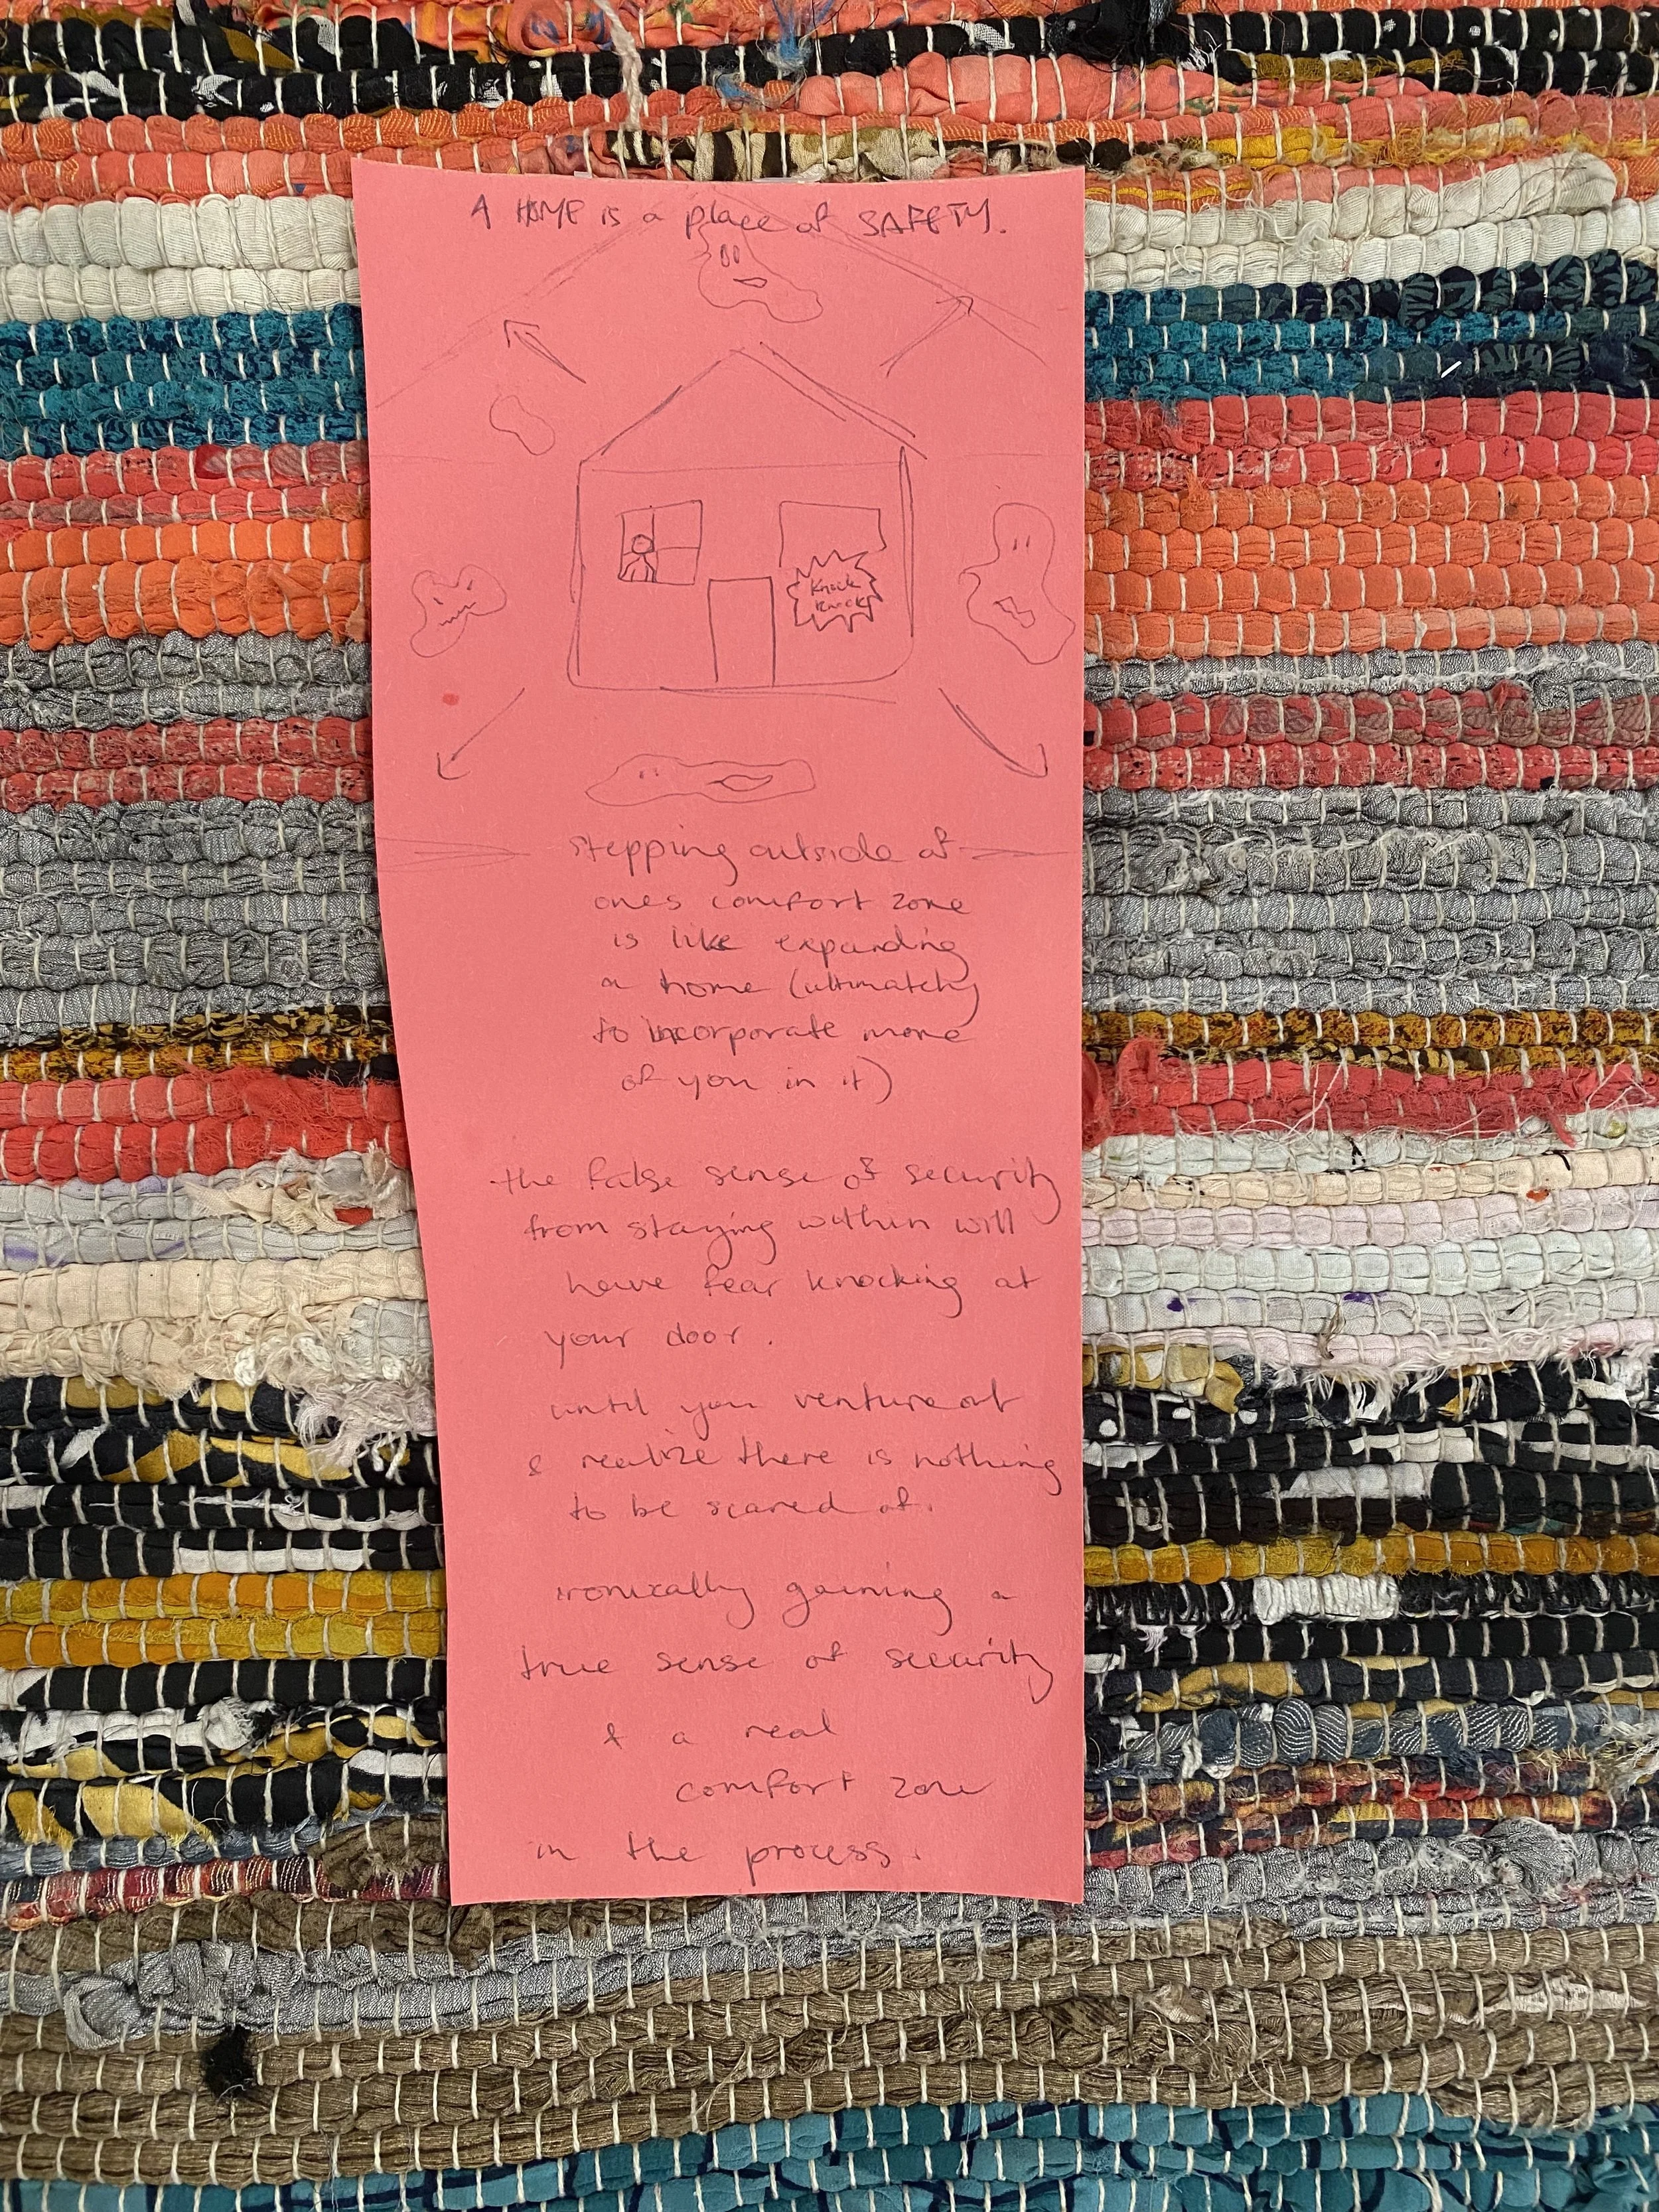 A HOME is a place of SAFETY.
Knock
knock
stepping outside of
ones comfort zone
is like expanding
a home (ultimately
to incorporate more
of you in it)
the false sense of security
from staying within will
have fear knocking at
your door.
until you venture out
& realize there is nothing
to be scared of.
ironically gaining a
true sense of security
& a real
comfort zone
in the process.